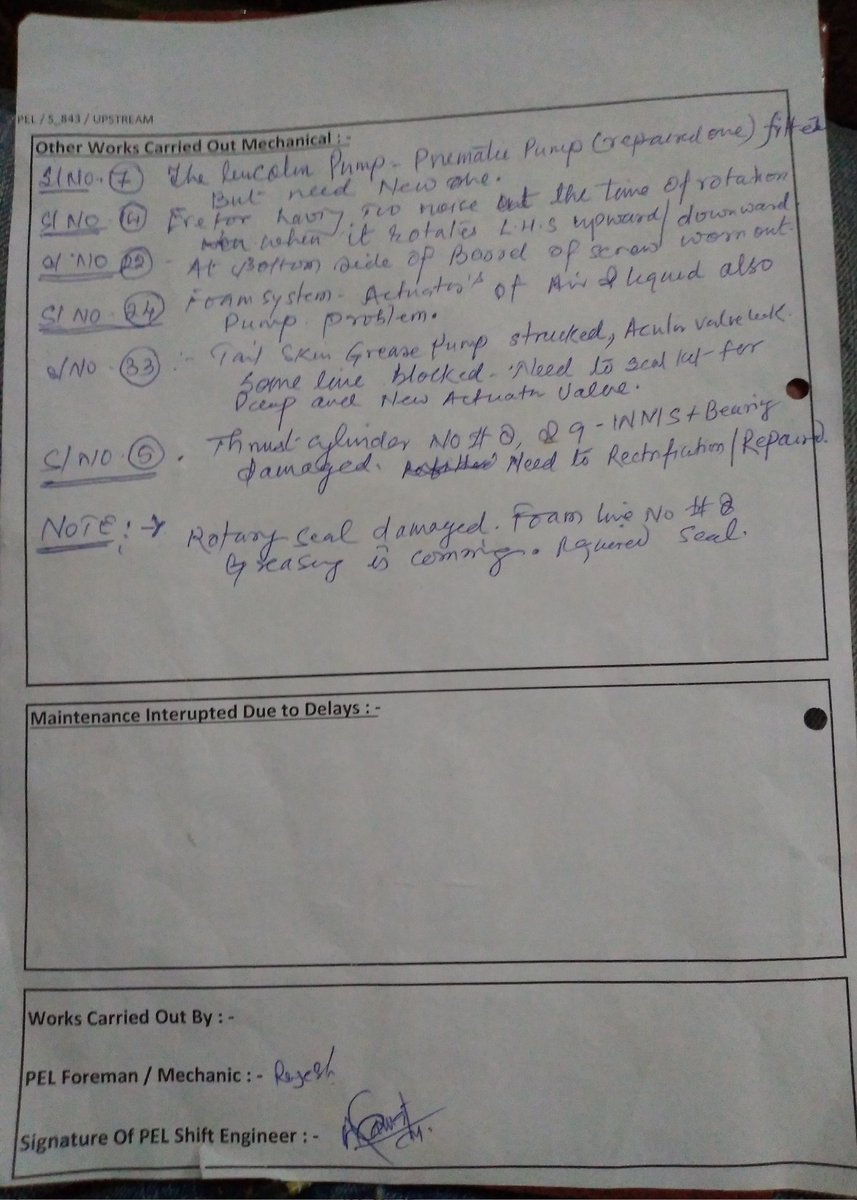 PEL / S_843 / UPSTREAM
Other Works Carried Out Mechanical : -
Sl NO. 7 The Lincoln Pump - Pnematic Pump (repaired one) fitted
But need New one.
Sl NO 14 Erector having noise at the time of rotation
when it rotates L.H.S upward/downward.
Sl NO 22 - At Bottom side of Board of screw worn out.
Sl NO. 24 Foam system - Actuator's of Air & liquid also
Pump problem.
Sl NO. 33 :- Tail Skin Grease Pump strucked, valve leak.
Some line blocked - Need to seal kit for
Pump and New Actuator Valve.
Sl NO. 5 . Thrust cylinder No # 8, & 9 - Bearing
damaged. Need to Rectrification/Repaired.
NOTE : → Rotary seal damaged. Foam line No # 8
Greasing is comming. Required Seal.
Maintenance Interupted Due to Delays : -
Works Carried Out By : -
PEL Foreman / Mechanic : - Rajesh
Signature Of PEL Shift Engineer : -